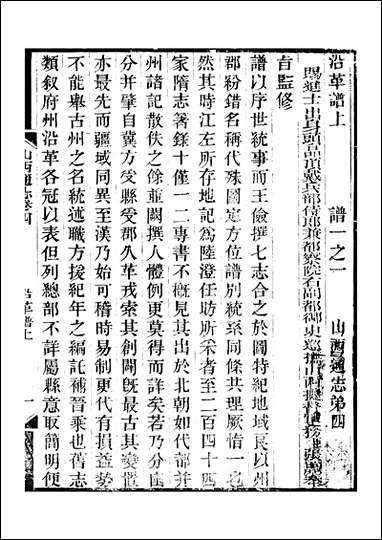 沿革譜上　譜一之一　山西通志第四
賜進士出身頭品頂戴兵部侍郎兼都察院右副都御史巡撫山西提督鹽政張煦奉
旨監修
譜以序世統事而王儉撰七志合之於圖特紀地域艮以州
郡紛錯名稱代殊國定方位譜別統系同條共理厥恉一也
然其時江左所存地記爲陸澄任昉所采者至二百四十四
家隋志著錄十僅一二專書不槪見其出於北朝如代都并
州諸記散佚之餘並闕撰人體例更莫得而詳矣若乃分州
分并肇自冀方受縣受郡久革戎索其創闢旣最古其變愆
亦最先而疆域同異至漢乃始可稽時易制更代有損益勢
不能舉古州之名統述職方援紀年之編託補晉乘也舊志
類叙府州沿革各冠以表但列總部不詳屬縣意取簡明便
山西通志卷四
沿革譜上
一